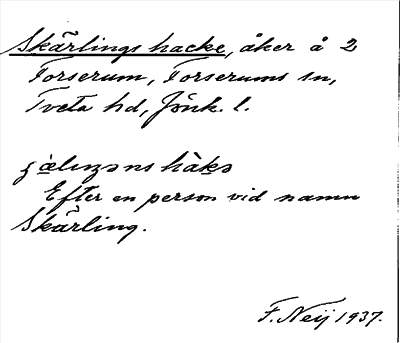 Skärlings hacke, åker å 2
Forserum, Forserums sn,
Tveta hd, Jönk. l.
Efter en person vid namn
Skärling.
F. Neij 1937.